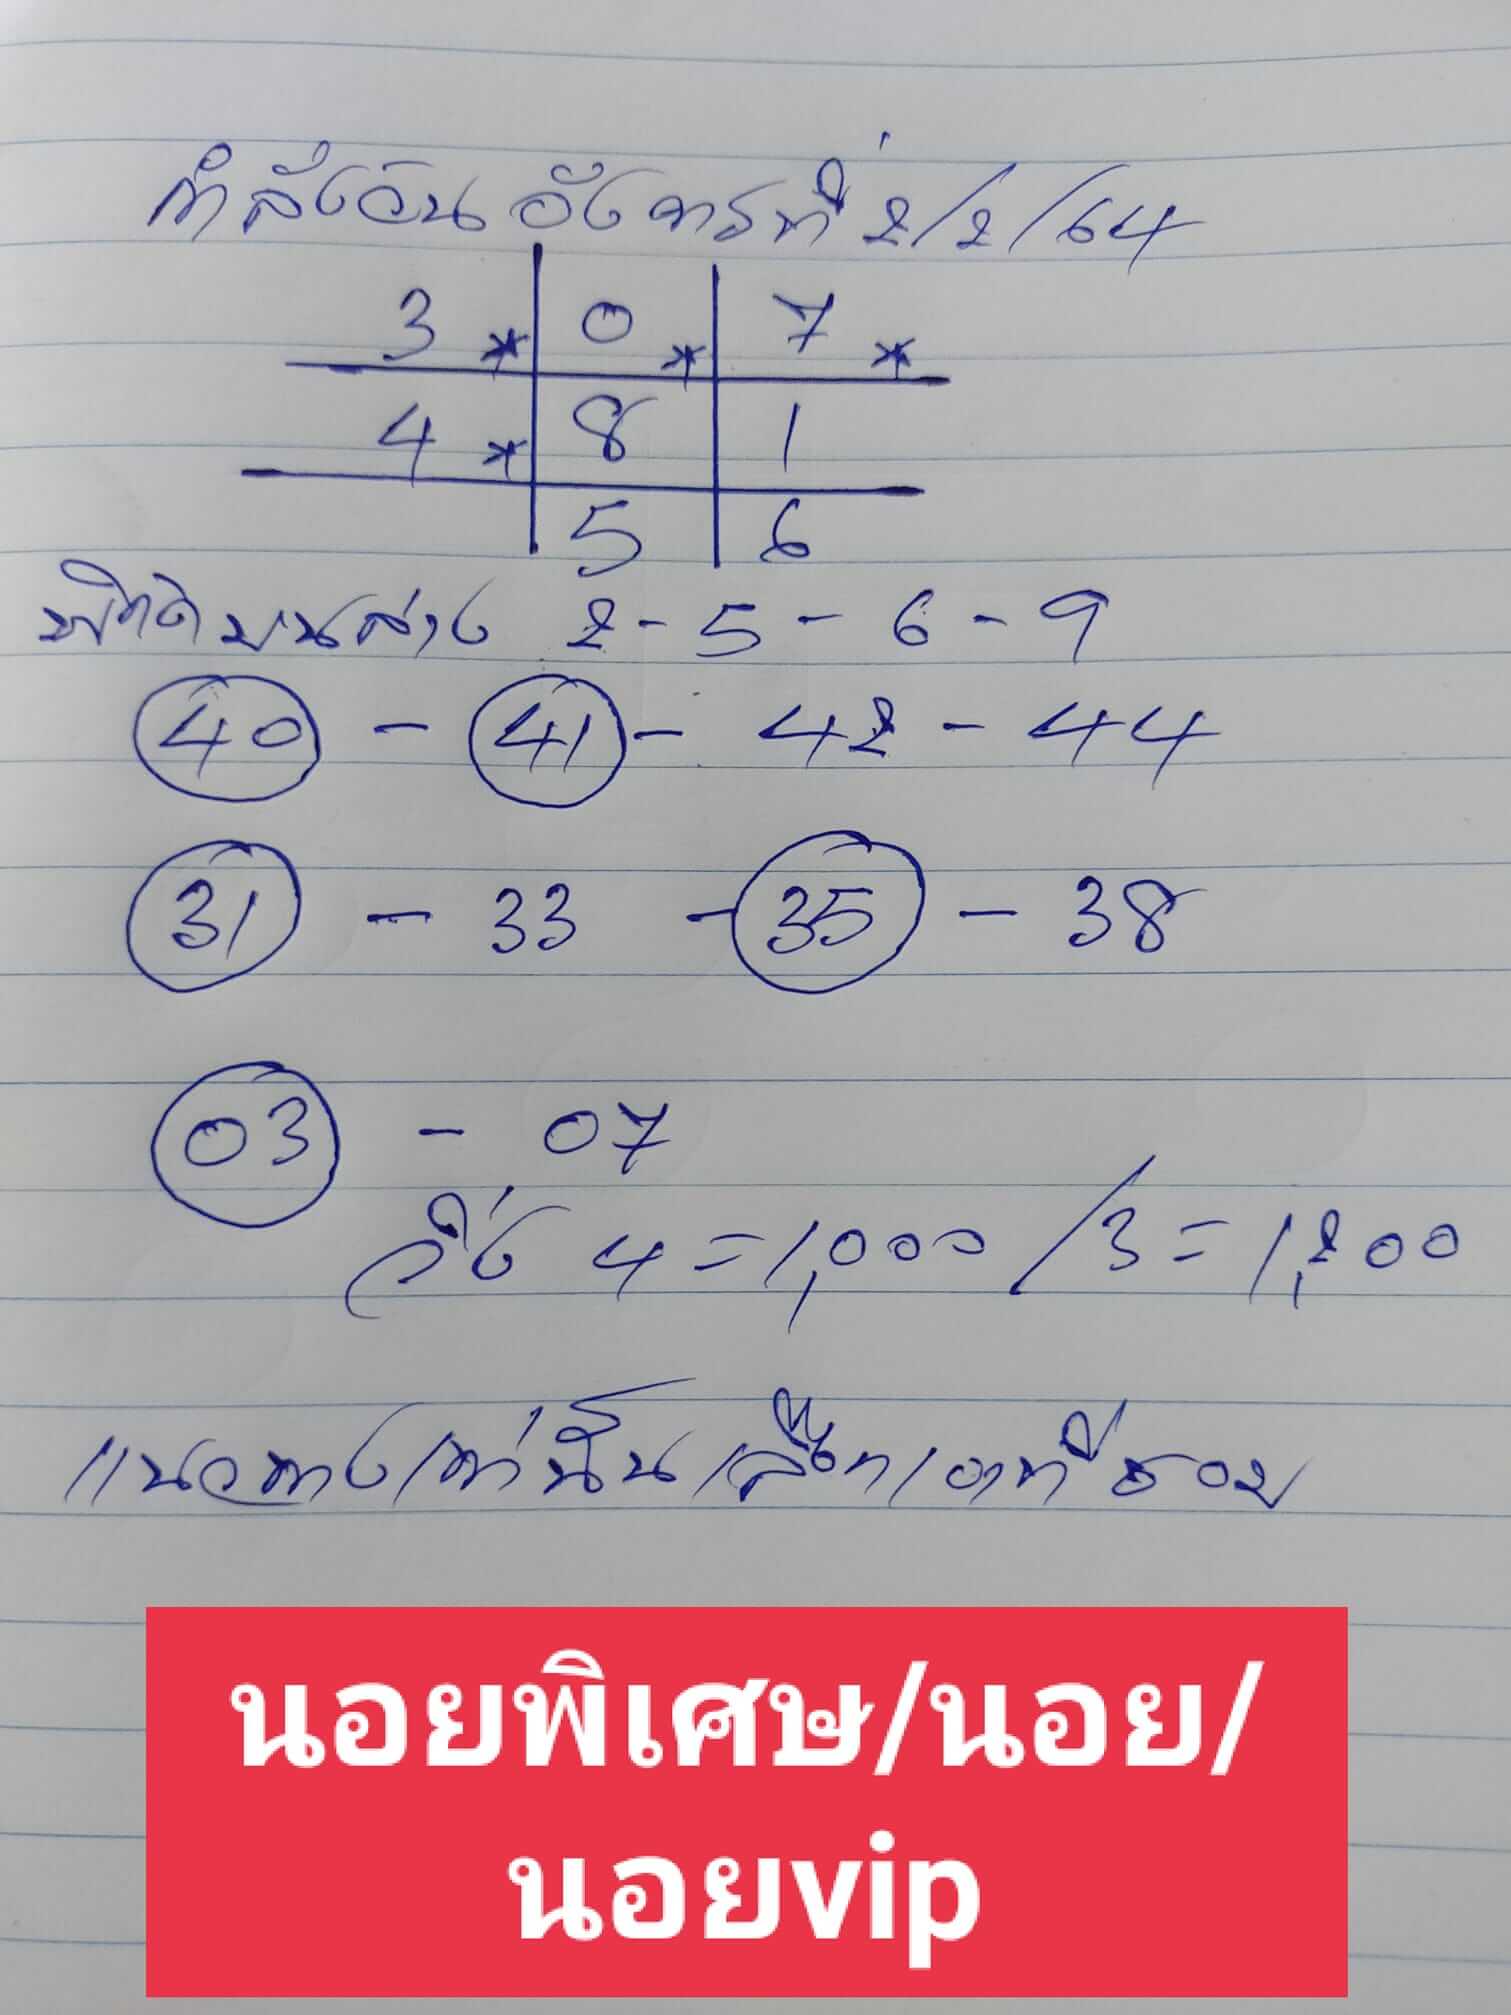 กำลังวันอังคารที่ 2/2/64
3 * 0 * 7 *
4 * 8 1
5 6
บนล่าง 2 - 5 - 6 - 9
40 - 41 - 42 - 44
31 - 33 - 35 - 38
03 - 07
วิ่ง 4 = 1,000 / 3 = 1,200
แนวทางเท่านั้นเลือกเอาที่ชอบ
นอยพิเศษ/นอย/
นอยvip